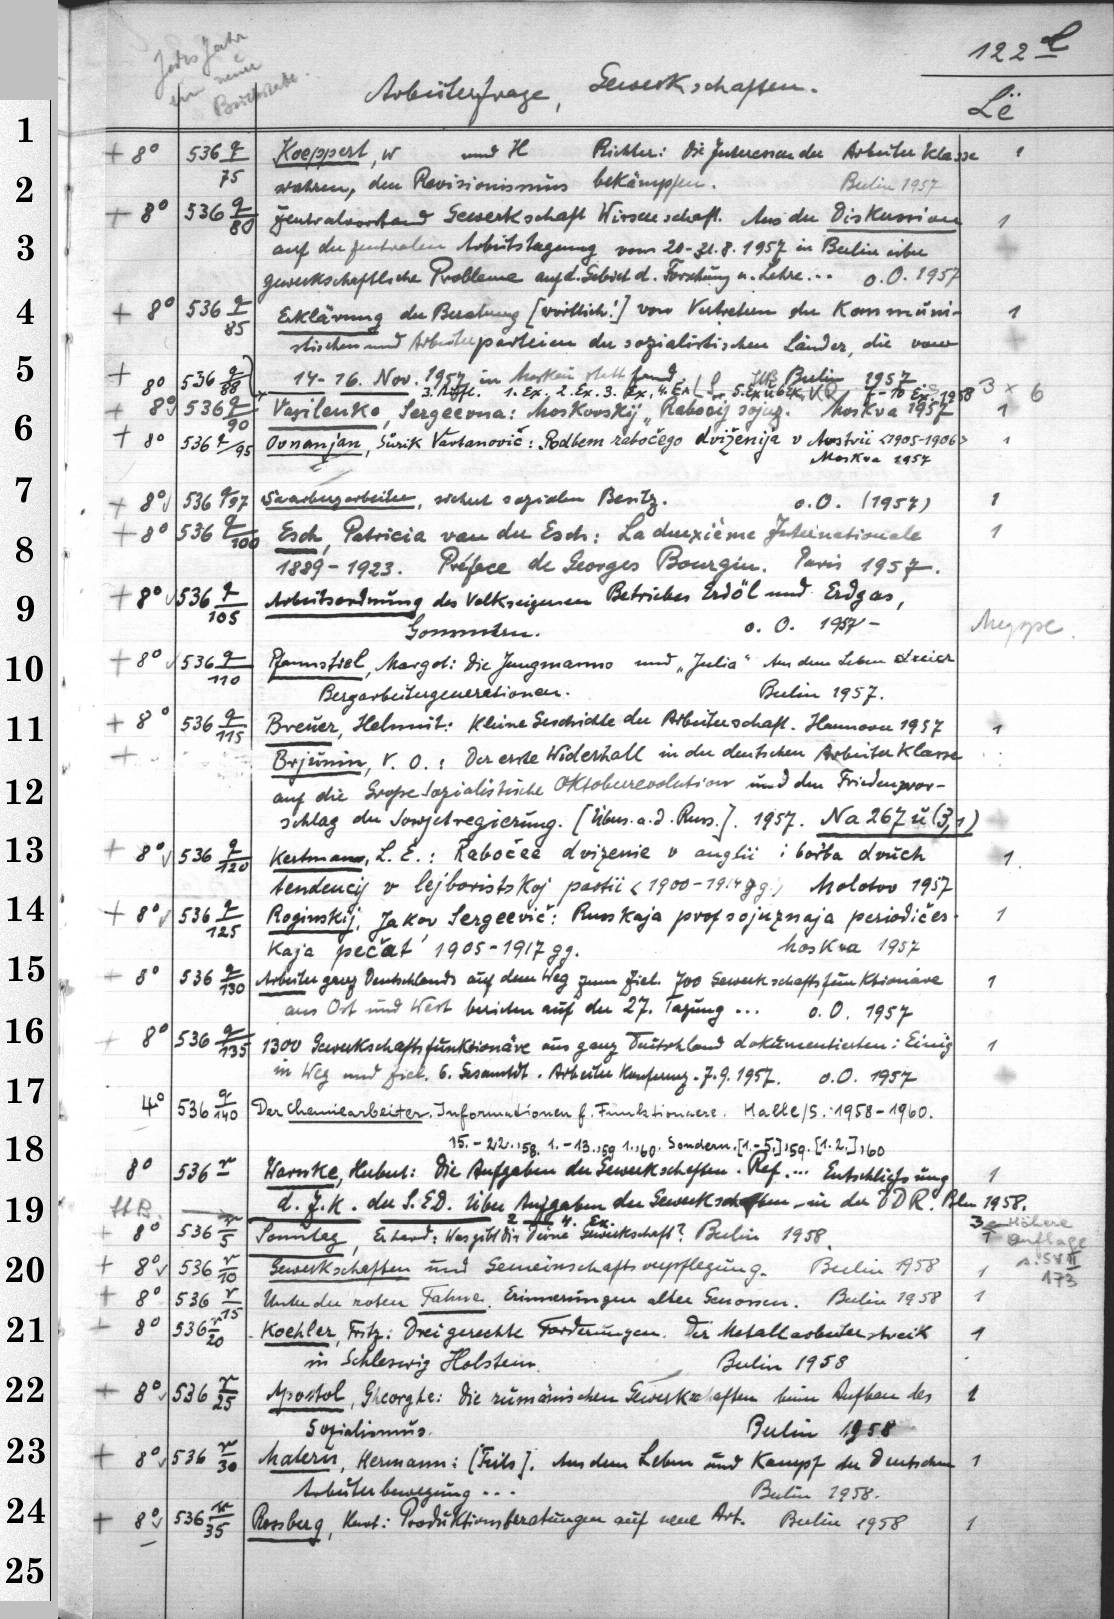 122 L
Jedes Jahr
ein neuer
Buchstabe.
Arbeiterfrage, Gewerkschaften.
Lë
1
+ 8° 536 q/75 Koeppert, W und H Richter: Die Interessen der Arbeiterklasse 1
2
wahren, den Revisionismus bekämpfen. Berlin 1957
+ 8° 536 q/80 Zentralvorstand Gewerkschaft Wissenschaft. Aus der Diskussion 1
3
auf der zentralen Arbeitstagung vom 20-21.8.1957 in Berlin über +
gewerkschaftliche Probleme auf d. Gebiet d. Forschung u. Lehre... o.O. 1957
4
+ 8° 536 q/85 Erklärung der Beratung [wörtlich!] von Vertretern der Kommuni- 1
stischen und Arbeiterparteien der sozialistischen Länder, die vom +
5
+ 8° 536 q/88 14.-16. Nov. 1957 in Moskau stattfand. Berlin 1957
3. Aufl. 1. Ex. 2. Ex. 3. Ex. 4. Ex. 1958 3 x 6
+ 8° 536 q/90 Vasilenko, Sergeevna: Moskovskij "Rabočij sojuz. Moskva 1957 1
6
+ 8° 536 q/95 Ovnanjan, Surik Vartanovič: Podbem rabočego dviženija v Avstrii <1905-1906> 1
Moskva 1957
7
+ 8° 536 q/97 Saarbergarbeiter, sichert sozialen Besitz. o.O. (1957) 1
+ 8° 536 q/100 Esch, Patricia van der Esch: La deuxième Internationale 1
8
1889-1923. Préface de Georges Bourgin. Paris 1957.
9
+ 8° 536 q/105 Arbeitsordnung des Volkseigenen Betriebes Erdöl und Erdgas,
Gommern. o. O. 1957-
10
+ 8° 536 q/110 Pfannstiel, Margot: Die Jungmanns und "Julia" Aus dem Leben dreier
Bergarbeitergenerationen. Berlin 1957.
11
+ 8° 536 q/115 Breuer, Helmut: Kleine Geschichte der Arbeiterschaft. Hannover 1957 1
+ Brjunin, V. O.: Der erste Widerhall in der deutschen Arbeiterklasse
12
auf die Große Sozialistische Oktoberrevolution und den Friedensvor-
schlag der Sowjetregierung. [Übers. a. d. Russ.]. 1957. Na 267 ü (3,1) +
13
+ 8° 536 q/120 Kertman, L. E.: Rabočee dviženie v anglii i borba dvuch 1.
tendencij v lejboristskoj partii <1900-1914 gg.> Molotov 1957
14
+ 8° 536 q/125 Roginskij, Jakov Sergeevič: Russkaja profsojuznaja periodičes- 1
kaja pečat' 1905-1917 gg. Moskva 1957
15
+ 8° 536 q/130 Arbeiter ganz Deutschlands auf dem Weg zum Ziel. 700 Gewerkschaftsfunktionäre 1
aus Ost und West berieten auf der 27. Tagung ... o.O. 1957
16
+ 8° 536 q/135 1300 Gewerkschaftsfunktionäre aus ganz Deutschland dokumentierten: Einig 1
in Weg und Ziel. 6. Gesamtdt. Arbeiter Konferenz. 7.9.1957. o.O. 1957 +
17
4° 536 q/140 Der Chemiearbeiter. Informationen f. Funktionaere. Halle/S. 1958-1960.
18
15.-22.,58. 1.-13.,59 1.,60. Sondern.[1.-5.],59. [1.2.],60
8° 536 r Warnke, Herbert: Die Aufgaben der Gewerkschaften. Ref.... Entschließung 1
19
d. Z.K. der S.E.D. über Aufgaben der Gewerkschaften in der DDR. Bln 1958.
2 4. Ex.
+ 8° 536 r/5 Sonntag, Erhard: Was gibt dir Deine Gewerkschaft? Berlin 1958. 3 Höhere
Auflage
s. SVII
173
20
+ 8° 536 r/10 Gewerkschaften und Gemeinschaftsverpflegung. Berlin 1958 1
+ 8° 536 r/15 Unter der roten Fahne. Erinnerungen alter Genossen. Berlin 1958 1
21
- 8° 536 r/20 Koehler, Fritz: Drei gerechte Forderungen. Der Metallarbeiterstreik 1
in Schleswig Holstein. Berlin 1958
22
+ 8° 536 r/25 Apostol, Gheorghe: Die rumänischen Gewerkschaften beim Aufbau des 1
Sozialismus. Berlin 1958
23
+ 8° 536 r/30 Matern, Hermann: [Teils]. Aus dem Leben und Kampf der deutschen 1
Arbeiterbewegung ... Berlin 1958.
24
+ 8° 536 r/35 Rossberg, Kurt: Produktionsberatungen auf neue Art. Berlin 1958 1
25